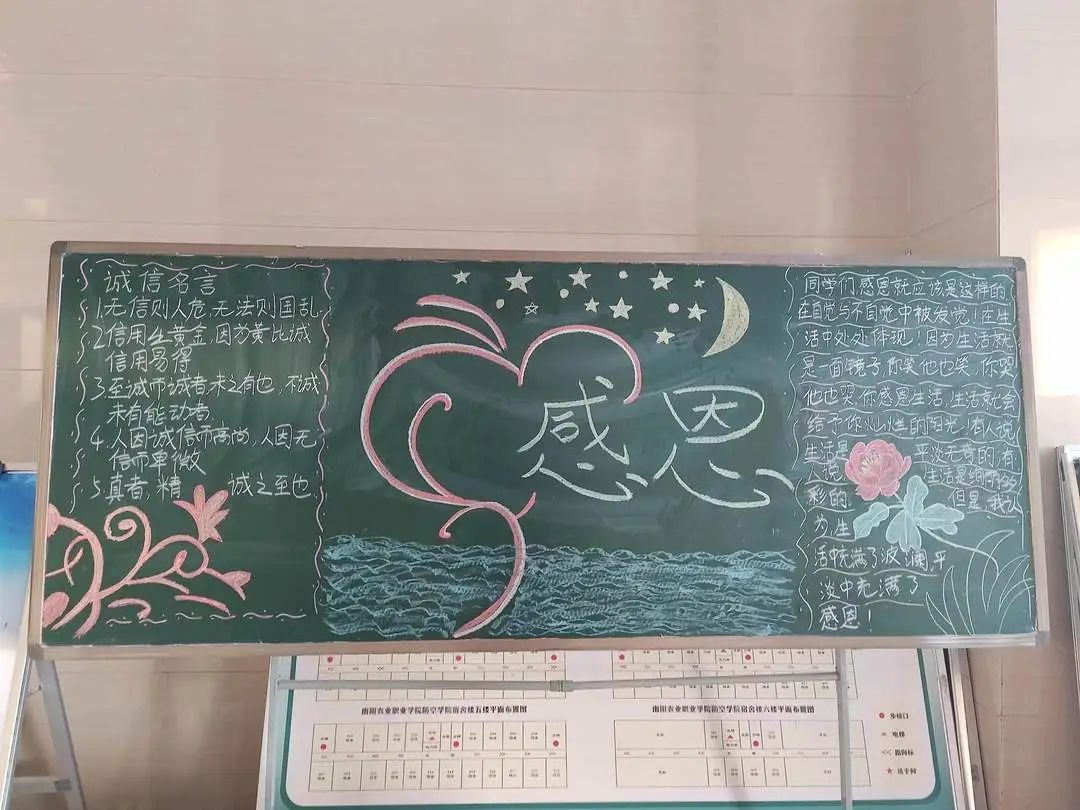 诚信名言
1.无信则人危,无法则国乱
2信用生黄金,因为黄比诚
信用易得
3至诚而诚者未之有也,不诚
未有能动者.
4.人因诚信而高尚,人因无
信而卑微
5.真者,精 诚之至也.
感恩
同学们感恩就应该是这样的
在自觉与不自觉中被发觉!在生
活中处处体现!因为生活就
是一面镜子,你笑他也笑,你哭
他也哭.你感恩生活,生活就会
给予你灿烂的阳光,有人说
生活是 平淡无奇的,有
人说 生活是
彩的. 但是,我认
为生
活中充满了波澜,平
淡中充满了
感恩!
南阳农业职业学院防空学院宿舍楼五楼平面布置图
南阳农业职业学院防空学院宿舍楼六楼平面布置图
步梯口
电梯
指向标
洗手间